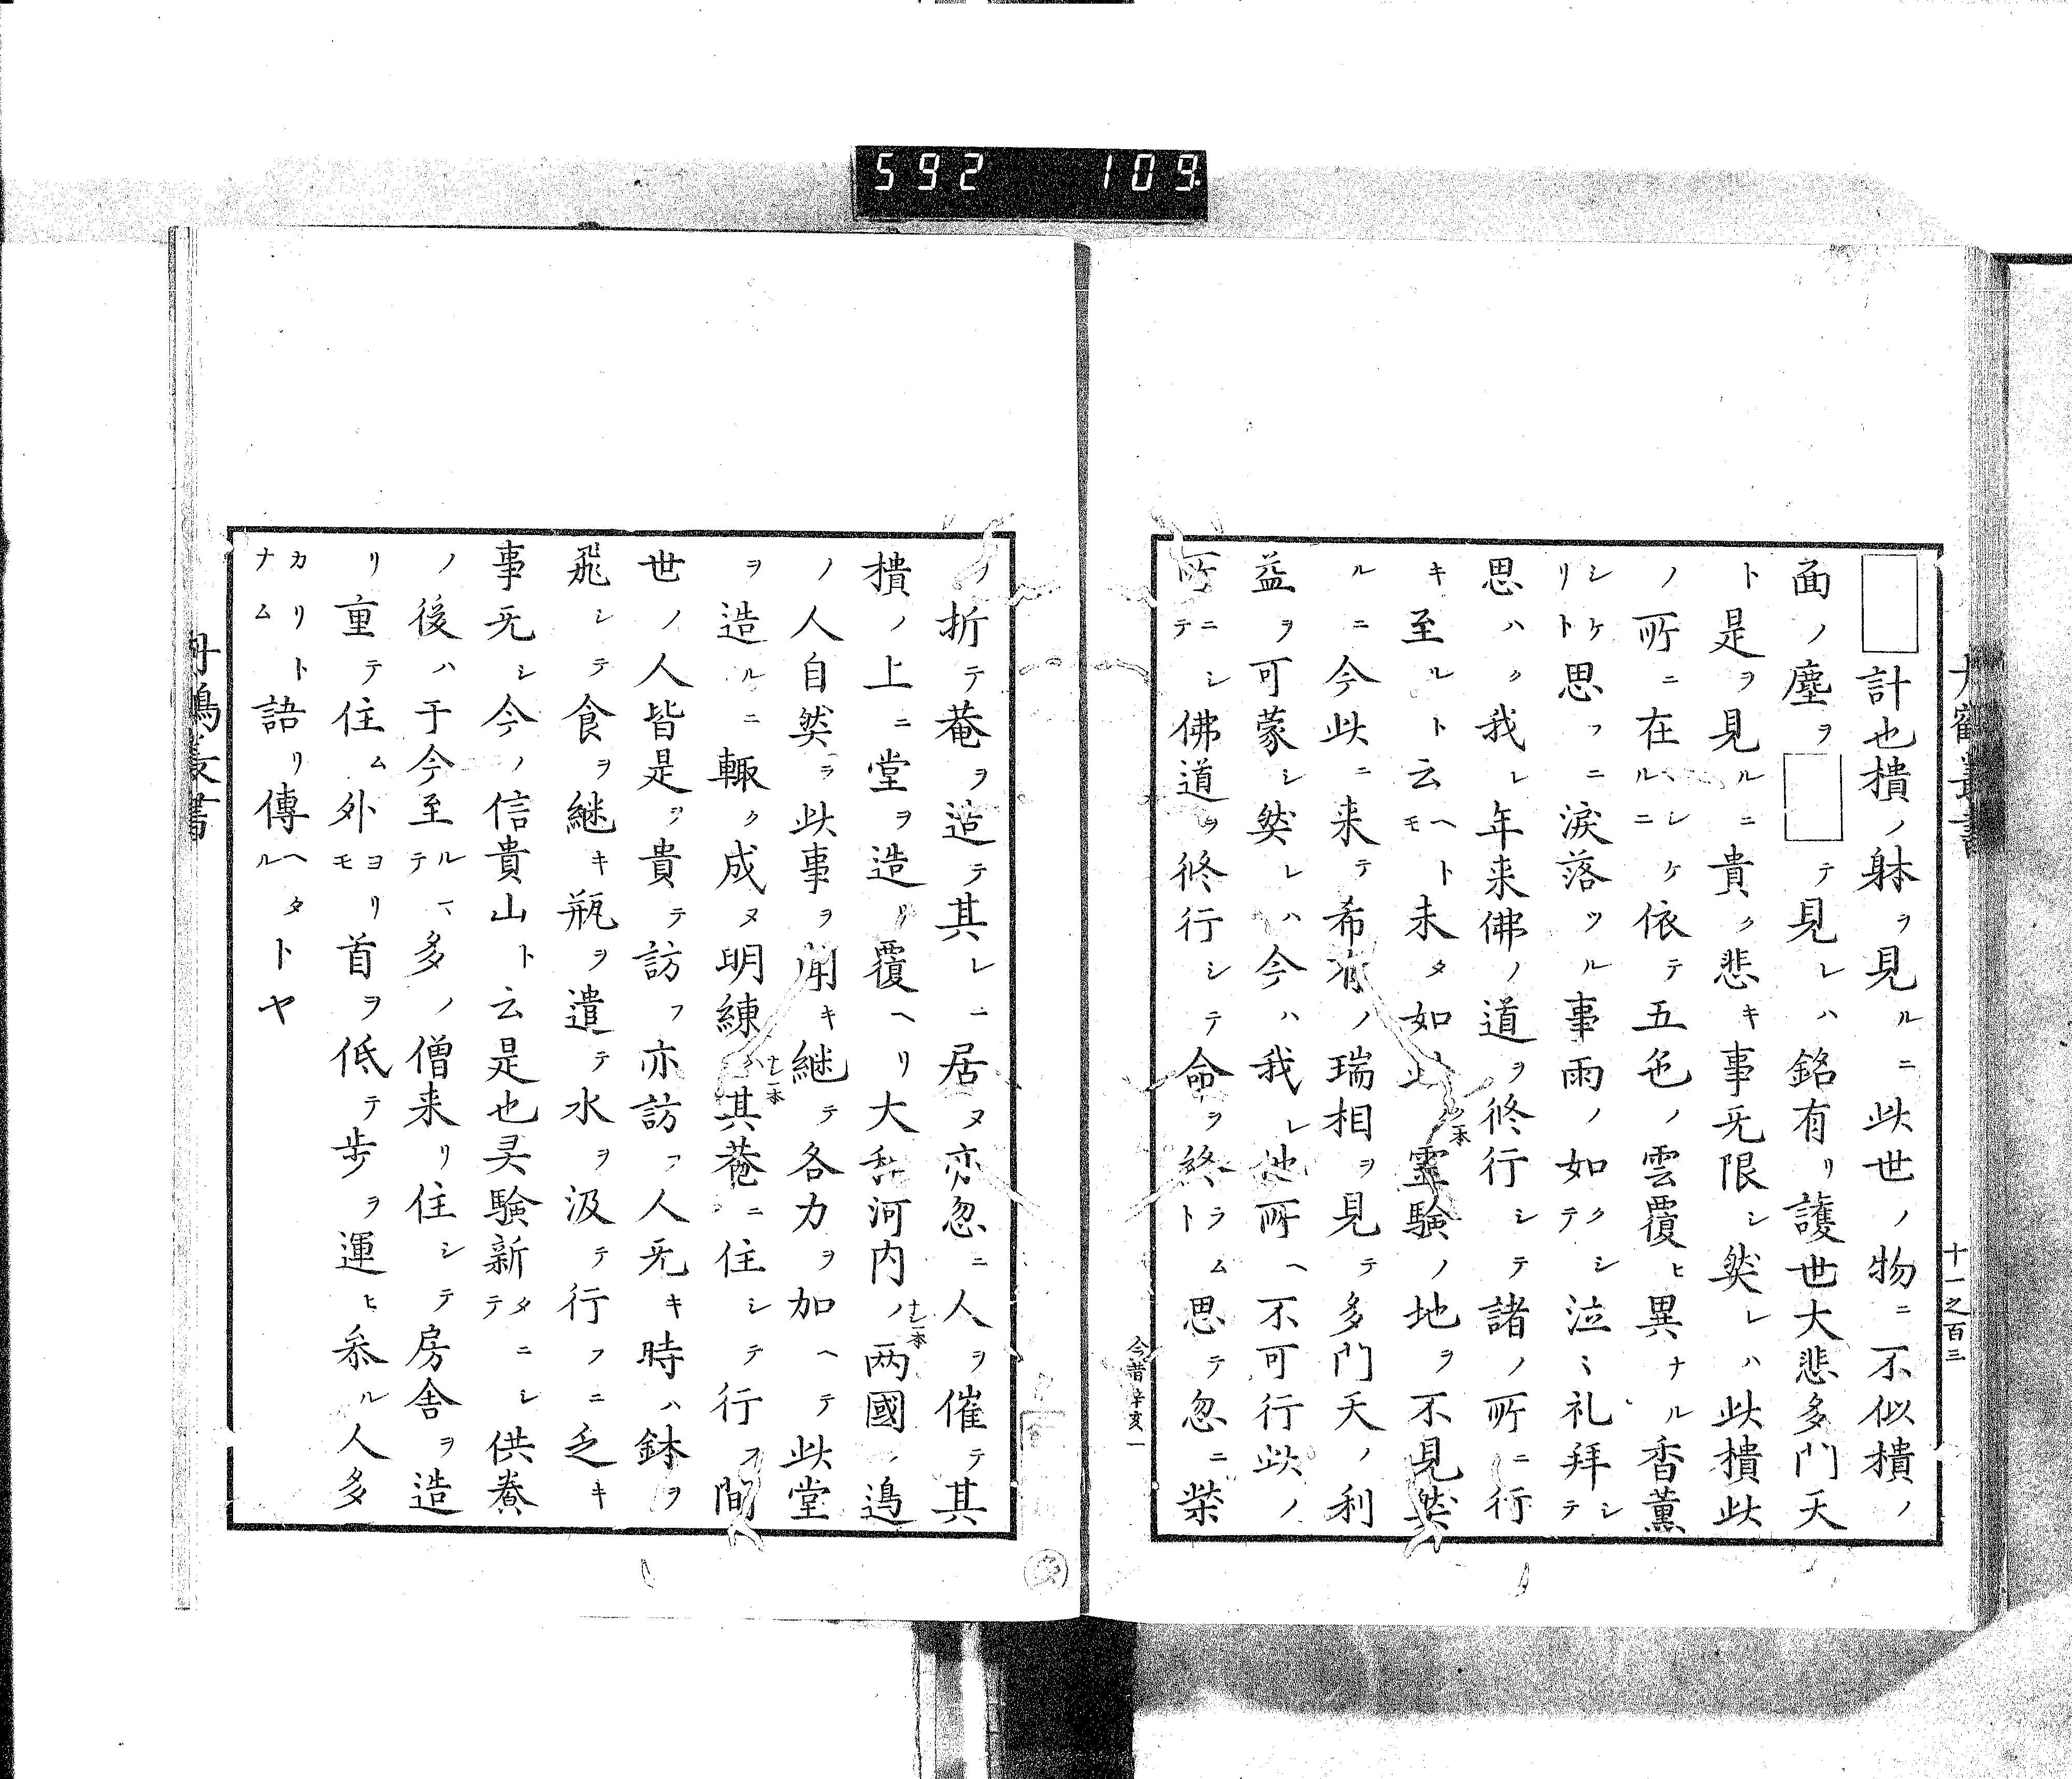 592 109
十一之百三
□計也樻ノ躰ヲ見ルニ此世ノ物ニ不似樻ノ
面ノ塵ヲ□テ見レハ銘有リ護世大悲多門天
ト是ヲ見ルニ貴ク悲キ事旡限シ然レハ此樻此
ノ所ニ在ルニシケニ依テ五色ノ雲覆ヒ異ナル香薫
シケリト思フニ淚落ツル事雨ノ如クシテ泣〻礼拜シテ
思ハク我レ年来佛ノ道ヲ修行シテ諸ノ所ニ行
キ至ルト云ヘトモ未タ如此ノ霊驗ノ地ヲ不見然
ルニ今此ニ来テ希有ノ瑞相ヲ見テ多門天ノ利
益ヲ可蒙シ然レハ今ハ我レ他所ヘ不可行此ノ
所ニシテ佛道ヲ修行シテ命ヲ終ラムト思テ忽ニ柴
今昔辛亥一
ノ折テ菴ヲ造テ其レニ居ヌ亦忽ニ人ヲ催テ其
樻ノ上ニ堂ヲ造リ覆ヘリ大和河内ノ两國ノ邉
ノ人自然ラ此事ヲ聞キ継テ各力ヲ加ヘテ此堂
ヲ造ルニ輙ク成ヌ明練ハ其菴ニ住シテ行フ間
世ノ人皆是ヲ貴テ訪フ亦訪フ人旡キ時ハ鉢ヲ
飛シテ食ヲ継キ瓶ヲ遣テ水ヲ汲テ行フニ乏キ
事旡シ今ノ信貴山ト云是也灵驗新タニシテ供養
ノ後ハ于今至ルマテ多ノ僧来リ住シテ房舎ヲ造
リ重テ住ム外ヨリモ首ヲ低テ歩ヲ運ヒ参ル人多
カリトナム語リ傳ヘタルトヤ